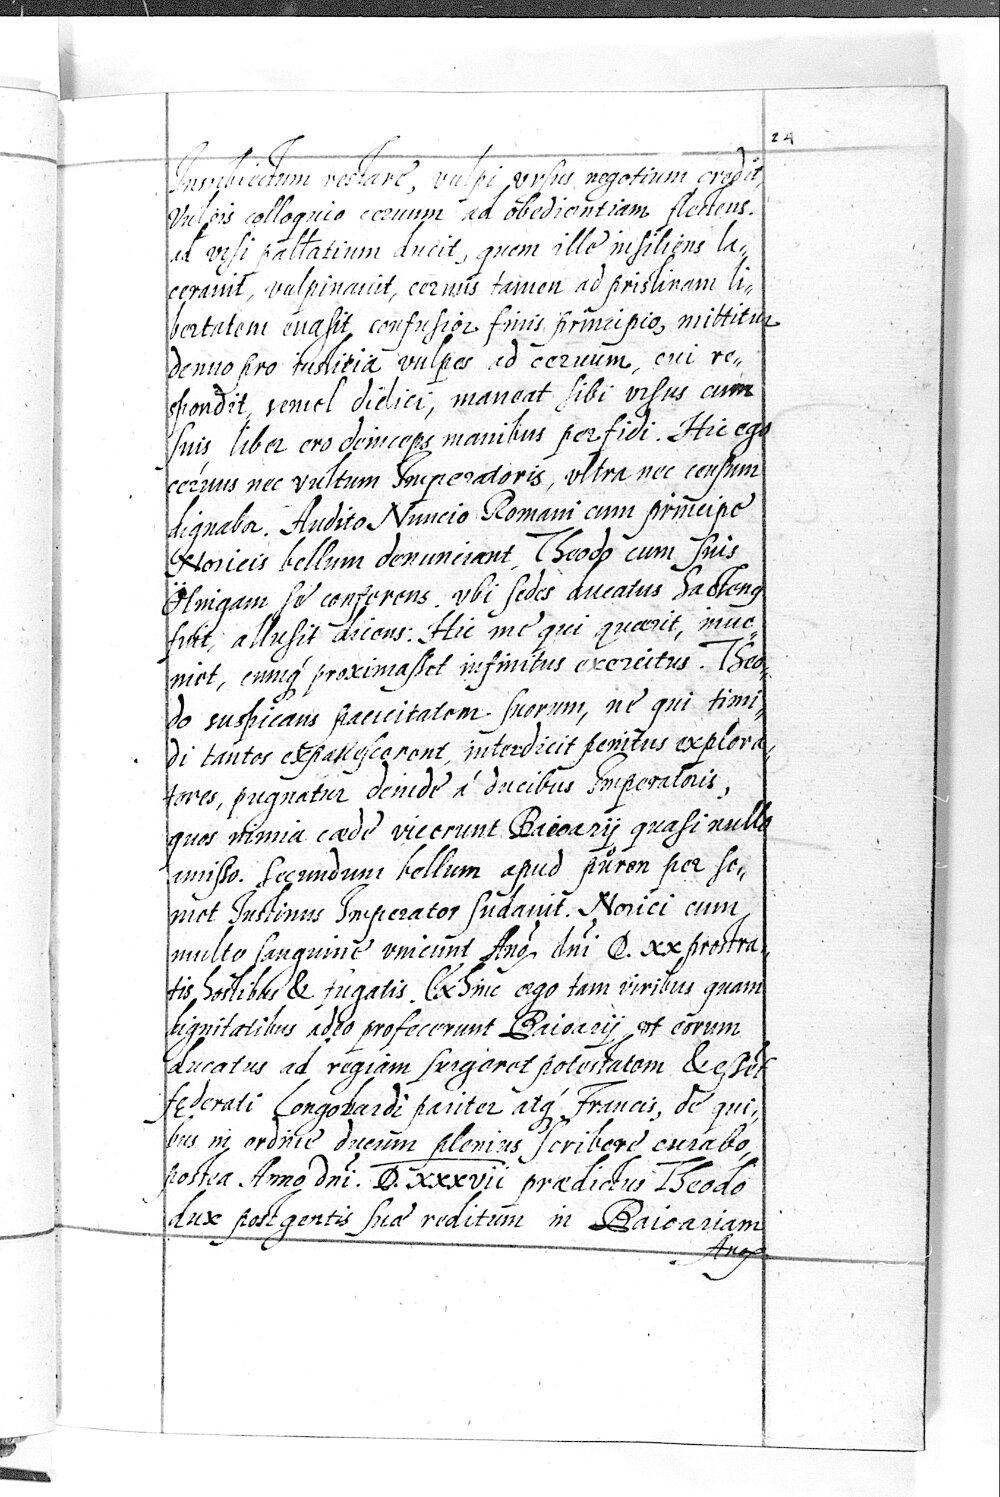 24
Insubiectum restare, vulpi vrsus negotium credit,
Vulpis colloquio ceruum ad obedientiam flectens.
ad vrsi pallatium ducit, quem ille insiliens la„
cerauit, vulpinauit, ceruus tamen ad pristinam li„
bertatem euasit confusior finis principio, mittitur
denuo pro iustitia vulpes ad ceruum, cui re„
spondit, semel didici, maneat sibi vrsus cum
suis liber ero deinceps manibus perfidi. Hic ego
ceruus nec vultum Imperatoris, vltra nec censum
dignabor. Audito Nuncio Romani cum principe
Noricis bellum denunciant, Theodo cum suis
se conferens. vbi sedes ducatus
fuit, allusit dicens: Hic me qui quaerit, inue„
niet, cumq́ proximasset infinitus exercitus. Theo„
do suspicans paucitatem suorum, ne qui timi„
di tantos expauescerent, interdicit penitus explora„
tores, pugnatur deinde á ducibus Imperatoris,
quos nimia caede vicerunt Baioarij quasi nullo
amisso. Secundum bellum apud půren per se„
met Iustinus Imperator sudauit. Norici cum
multo sanguine vincunt Año dñi D. xx prostra„
tis hostibus & fugatis. Exhinc ergo tam viribus quam
dignitatibus adeo profecerunt Baioarij vt eorum
ducatus ad regiam surgeret potestatem & essēt
federati Longobardi pariter atq́ Francis, de qui„
bus in ordine ducum plenius scribere curabo,
postea Anno dñi. D. xxxvii praedictus Theodo
dux post gentis suae reditum in Baioariam